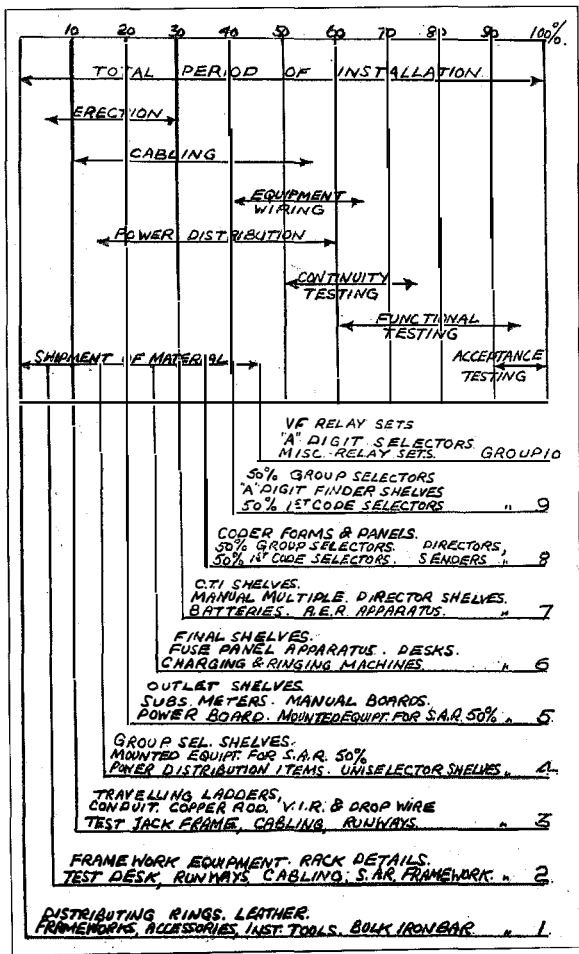 10 20 30 40 50 60 70 80 90 100%
TOTAL PERIOD OF INSTALLATION
ERECTION
CABLING
EQUIPMENT
WIRING
POWER DISTRIBUTION
CONTINUITY
TESTING
FUNCTIONAL
TESTING
SHIPMENT OF MATERIAL
ACCEPTANCE
TESTING
VF RELAY SETS
"A" DIGIT SELECTORS
MISC. RELAY SETS. GROUP 10
50% GROUP SELECTORS
"A" DIGIT FINDER SHELVES
50% 1ST CODE SELECTORS " 9
CODER FORMS & PANELS.
50% GROUP SELECTORS. DIRECTORS,
50% 1ST CODE SELECTORS. SENDERS " 8
C.T.I SHELVES.
MANUAL MULTIPLE. DIRECTOR SHELVES.
BATTERIES. A.E.R. APPARATUS. " 7
FINAL SHELVES.
FUSE PANEL APPARATUS. DESKS.
CHARGING & RINGING MACHINES. " 6
OUTLET SHELVES.
SUBS. METERS. MANUAL BOARDS.
POWER BOARD. MOUNTED EQUIPT. FOR S.A.R. 50% " 5
GROUP SEL. SHELVES.
MOUNTED EQUIPT. FOR S.A.R. 50%
POWER DISTRIBUTION ITEMS. UNISELECTOR SHELVES " 4
TRAVELLING LADDERS,
CONDUIT. COPPER ROD. V.I.R. & DROP WIRE
TEST JACK FRAME, CABLING, RUNWAYS. " 3
FRAMEWORK EQUIPMENT. RACK DETAILS.
TEST DESK, RUNWAYS, CABLING, S.A.R. FRAMEWORK. " 2
DISTRIBUTING RINGS. LEATHER.
FRAMEWORKS, ACCESSORIES, INST. TOOLS. BULK IRON BAR " 1